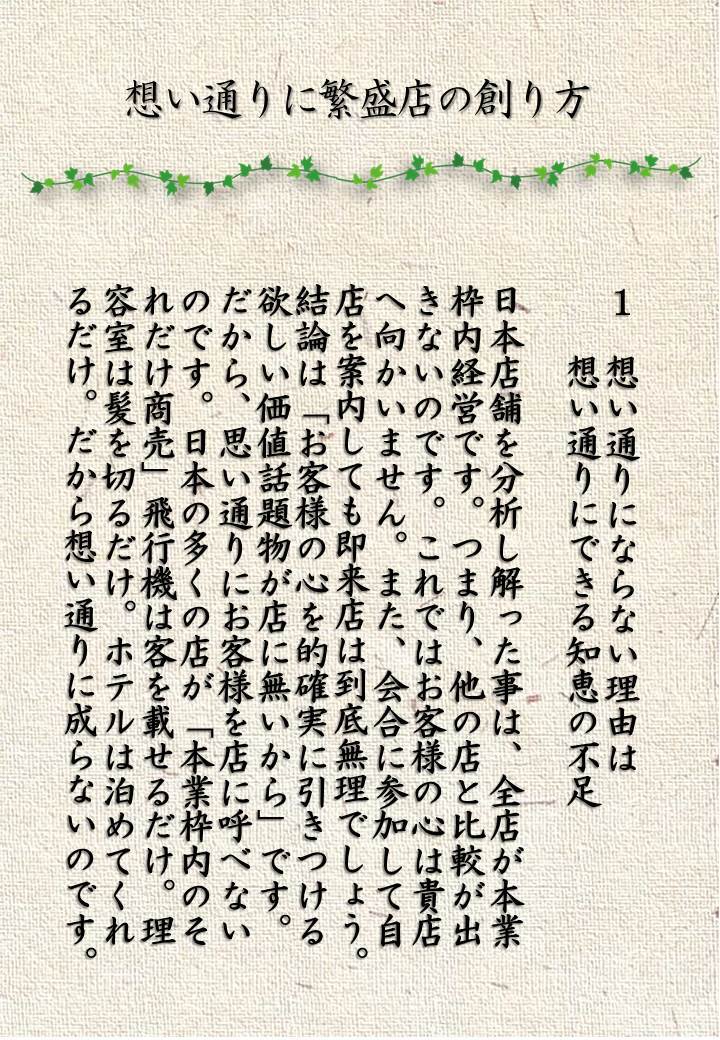 想い通りに繁盛店の創り方
1 想い通りにならない理由は
想い通りにできる知恵の不足
日本店舗を分析し解った事は、全店が本業
枠内経営です。つまり、他の店と比較が出
きないのです。これではお客様の心は貴店
へ向かいません。また、会合に参加して自
店を案内しても即来店は到底無理でしょう。
結論は「お客様の心を的確実に引きつける
欲しい価値話題物が店に無いから」です。
だから、思い通りにお客様を店に呼べない
のです。日本の多くの店が「本業枠内のそ
れだけ商売」飛行機は客を載せるだけ。理
容室は髪を切るだけ。ホテルは泊めてくれ
るだけ。だから想い通りに成らないのです。